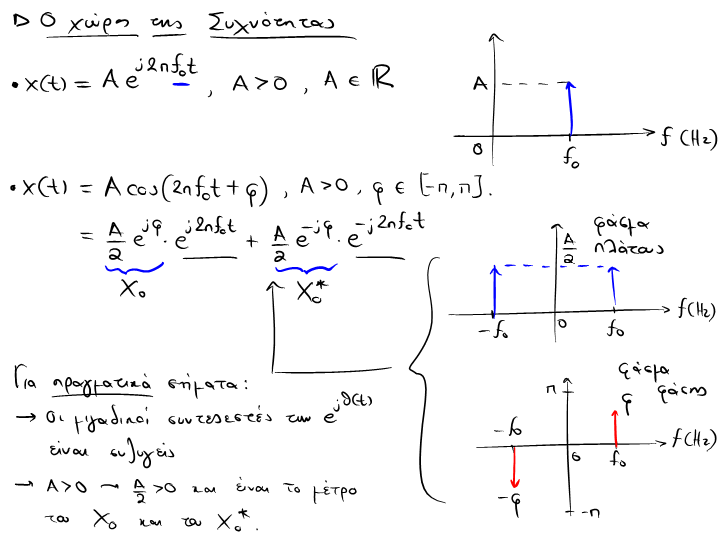 ▷ Ο χώρος της Συχνότητας
• x(t) = A e^{j2πf₀t} , A > 0 , A ∈ ℝ
A
0
f₀
f (Hz)
• x(t) = A cos(2πf₀t + φ) , A > 0 , φ ∈ [-π, π].
= A/2 e^{jφ} · e^{j2πf₀t} + A/2 e^{-jφ} · e^{-j2πf₀t}
X₀
X₀*
A/2
φάσμα
πλάτους
-f₀
0
f₀
f(Hz)
Για πραγματικά σήματα:
→ Οι μιγαδικοί συντελεστές των e^{jθ(t)}
είναι συζυγείς
→ A > 0 → A/2 > 0 και είναι το μέτρο
του X₀ και του X₀*.
φάσμα
φάσης
π
φ
-f₀
0
f₀
f(Hz)
-φ
-π